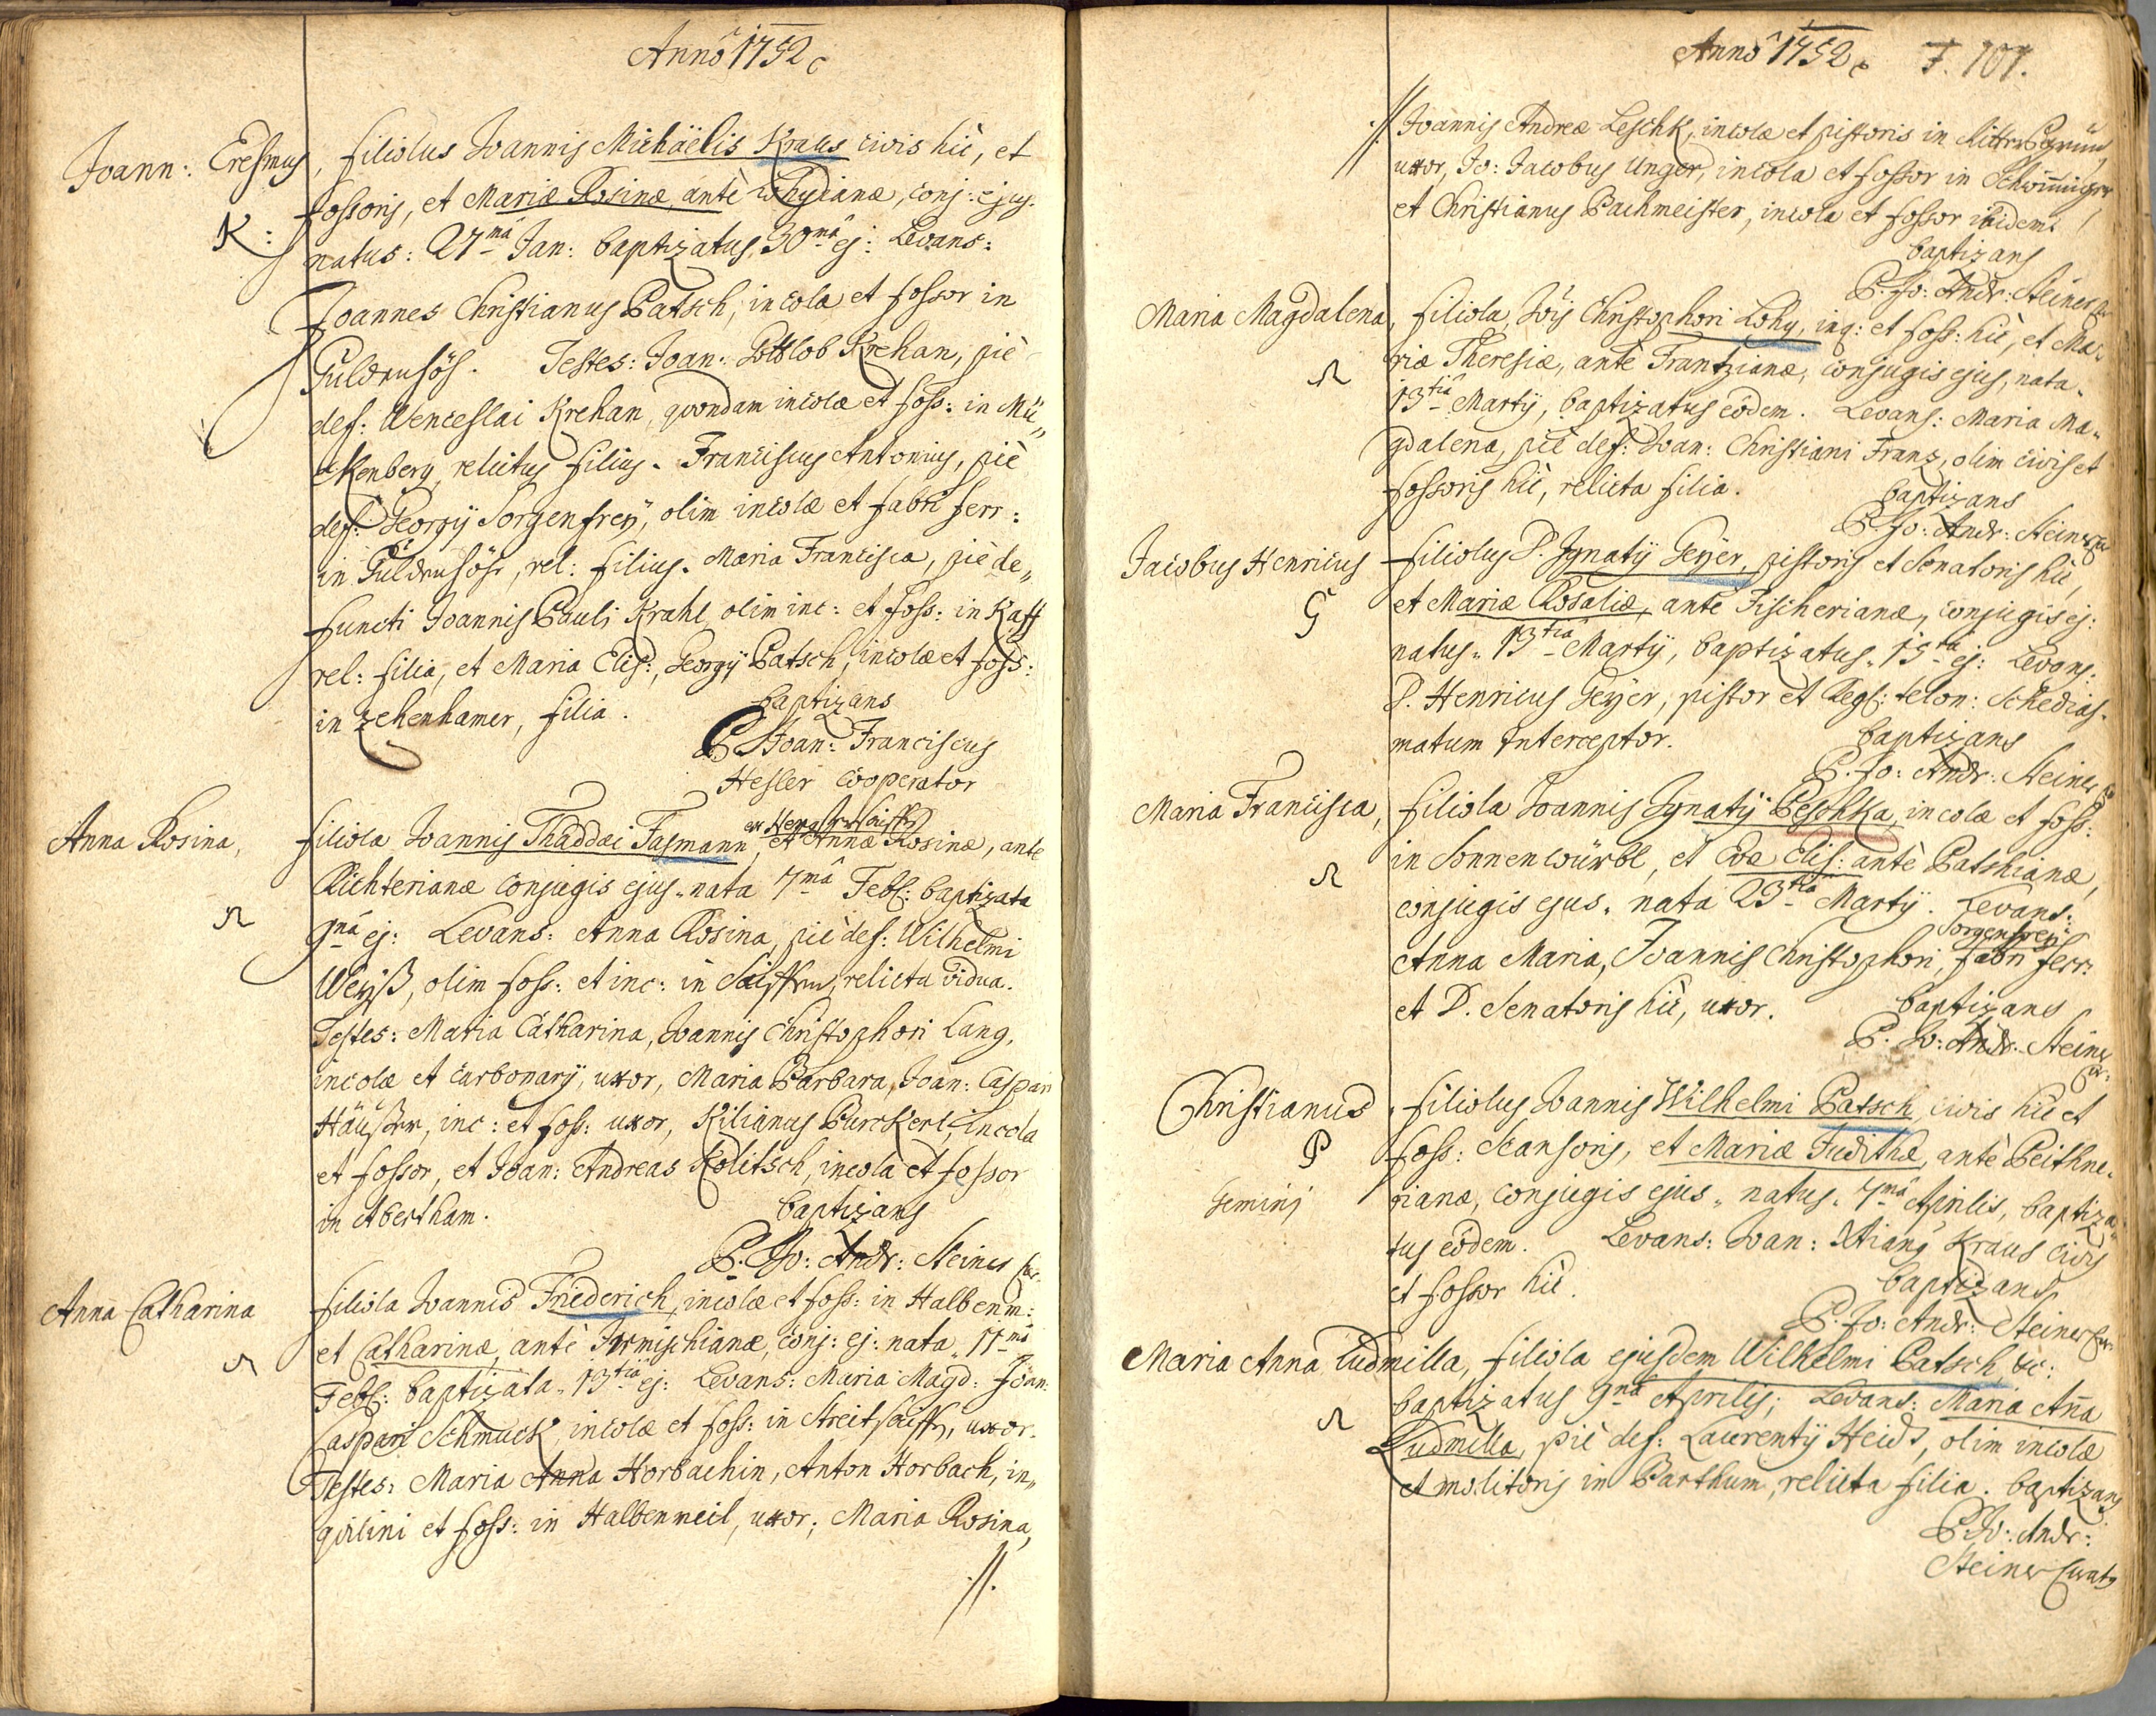 Anno 1752
Joann: Eresmus, filiolus Joannis Michaëlis Kraus civis hic, et
K:
fossoris, et Mariæ Rosinæ, antè Lohyianæ, conj: ejus.
natus: 27mâ Jan: baptizatus 30mâ ej: Levans:
Joannes Christianus Patsch, incola et fossor in
Guldenhöh. Testes: Joan: Gottlob Krehan, piè
def: Wenceslai Krehan, quondam incolæ et foss: in Mü„
ckenberg, relictus filius. Franciscus Antonius, piè
def: Georgij Sorgenfreÿ, olim incolæ et fabri ferr:
in Guldenhöhe, rel: filius. Maria Francisca, piè de„
functi Joannis Pauli Krahl olim inc: et foss: in Kaff
rel: filia, et Maria Elis:, Georgij Patsch, incolæ et foss:
in Zehenhamer, filia. baptizans
P. Joan: Franciscus
Hesler Cooperator
Anna Rosina,
filiola Joannis Thaddæi Fasmann, et Annæ Rosinæ, antè
Richterianæ conjugis ejus. nata 7mâ Feb: baptizata
9nâ ej: Levans: Anna Rosina, piè def: Wilhelmi
Weÿß, olim foss: et inc: in Seiffen, relicta vidua.
Testes: Maria Catharina, Joannis Christophori Lang,
incolæ et carbonarij, uxor, Maria Barbara, Joan: Caspari
Häußer, inc: et foss: uxor, Kilianus Burckert, incola
et fossor, et Joan: Andreas Kolitsch, incola et fossor
in Abertham. baptizans
P. Jo: Andr: Steiner Cur.
Anna Catharina
filiola Joannis Friederich, incolæ et foss: in Halbenm:
et Catharinæ, antè Irmischianæ, conj: ej: nata 11mâ
Feb: baptizata 13tiâ ej: Levans: Maria Magd: Joan:
Caspari Schmuck, incolæ et foss: in Streitseiffen, uxor.
Testes: Maria Anna Horbachin, Anton Horbach, in„
quilini et foss: in Halbenmeil, uxor; Maria Rosina,
.//.
Anno 1752 F. 101.
.//. Joannis Andreæ Leschk, incolæ et pistoris in Ritter Pergrün,
uxor, Jo: Jacobus Unger, incola et fossor in
et Christianus Pachmeister, incola et fossor ibidem.
baptizans
P. Jo: Andr: Steiner Cur
Maria Magdalena, filiola Jois Christophori Lohy, inq: et foss: hic, et Ma„
riæ Theresiæ, antè Frantzianæ, conjugis ejus, nata
13tiâ Martij, baptizatus eôdem. Levans: Maria Ma„
gdalena, piè def: Joan: Christiani Franz, olim civis et
fossoris hic, relicta filia. baptizans
P. Jo: Andr: Steiner Cur
Jacobus Henricus filiolus D. Ignatij Geÿer, pistoris et Senatoris hic,
G
et Mariæ Rosaliæ, antè Fischerianæ, conjugis ej:
natus 13tiâ Martij, baptizatus 15tâ ej: Levans:
D. Henricus Geÿer, pistor et Reg: telon: Schedias„
matum Interceptor. baptizans
P. Jo: Andr: Steiner
Maria Francisca, filiola Joannis Ignatij Peschka, incolæ et foss:
in Sonnenwürbl, et Evæ Elis: antè Patshianæ,
conjugis ejus. nata 23tiâ Martij. Levans:
Sorgenfreÿ
Anna Maria, Joannis Christophori, fabri ferr:
et D. Senatoris hic, uxor. baptizans
P. Jo: Andr: Steiner
Cur:
Christianus, filiolus Joannis Wilhelmi Patsch, civis hic et
P
foss: Scansoris, et Mariæ Judithæ, antè Peithne„
Geminj
rianæ, conjugis ejus. natus. 7mâ Aprilis, baptiza„
tus eôdem. Levans: Joan: Xtianus Kraus civis
et fossor hic. baptizans
P. Jo: Andr: Steiner Cur
Maria Anna Ludmilla, filiola ejusdem Wilhelmi Patsch, &c:
baptizatus 9nâ Aprilis; Levans: Maria Aña
Ludmilla, piè def: Laurentij Heidl, olim incolæ
et molitoris in Parthum, relicta filia. baptizans
P. Jo: Andr:
Steiner Curatus